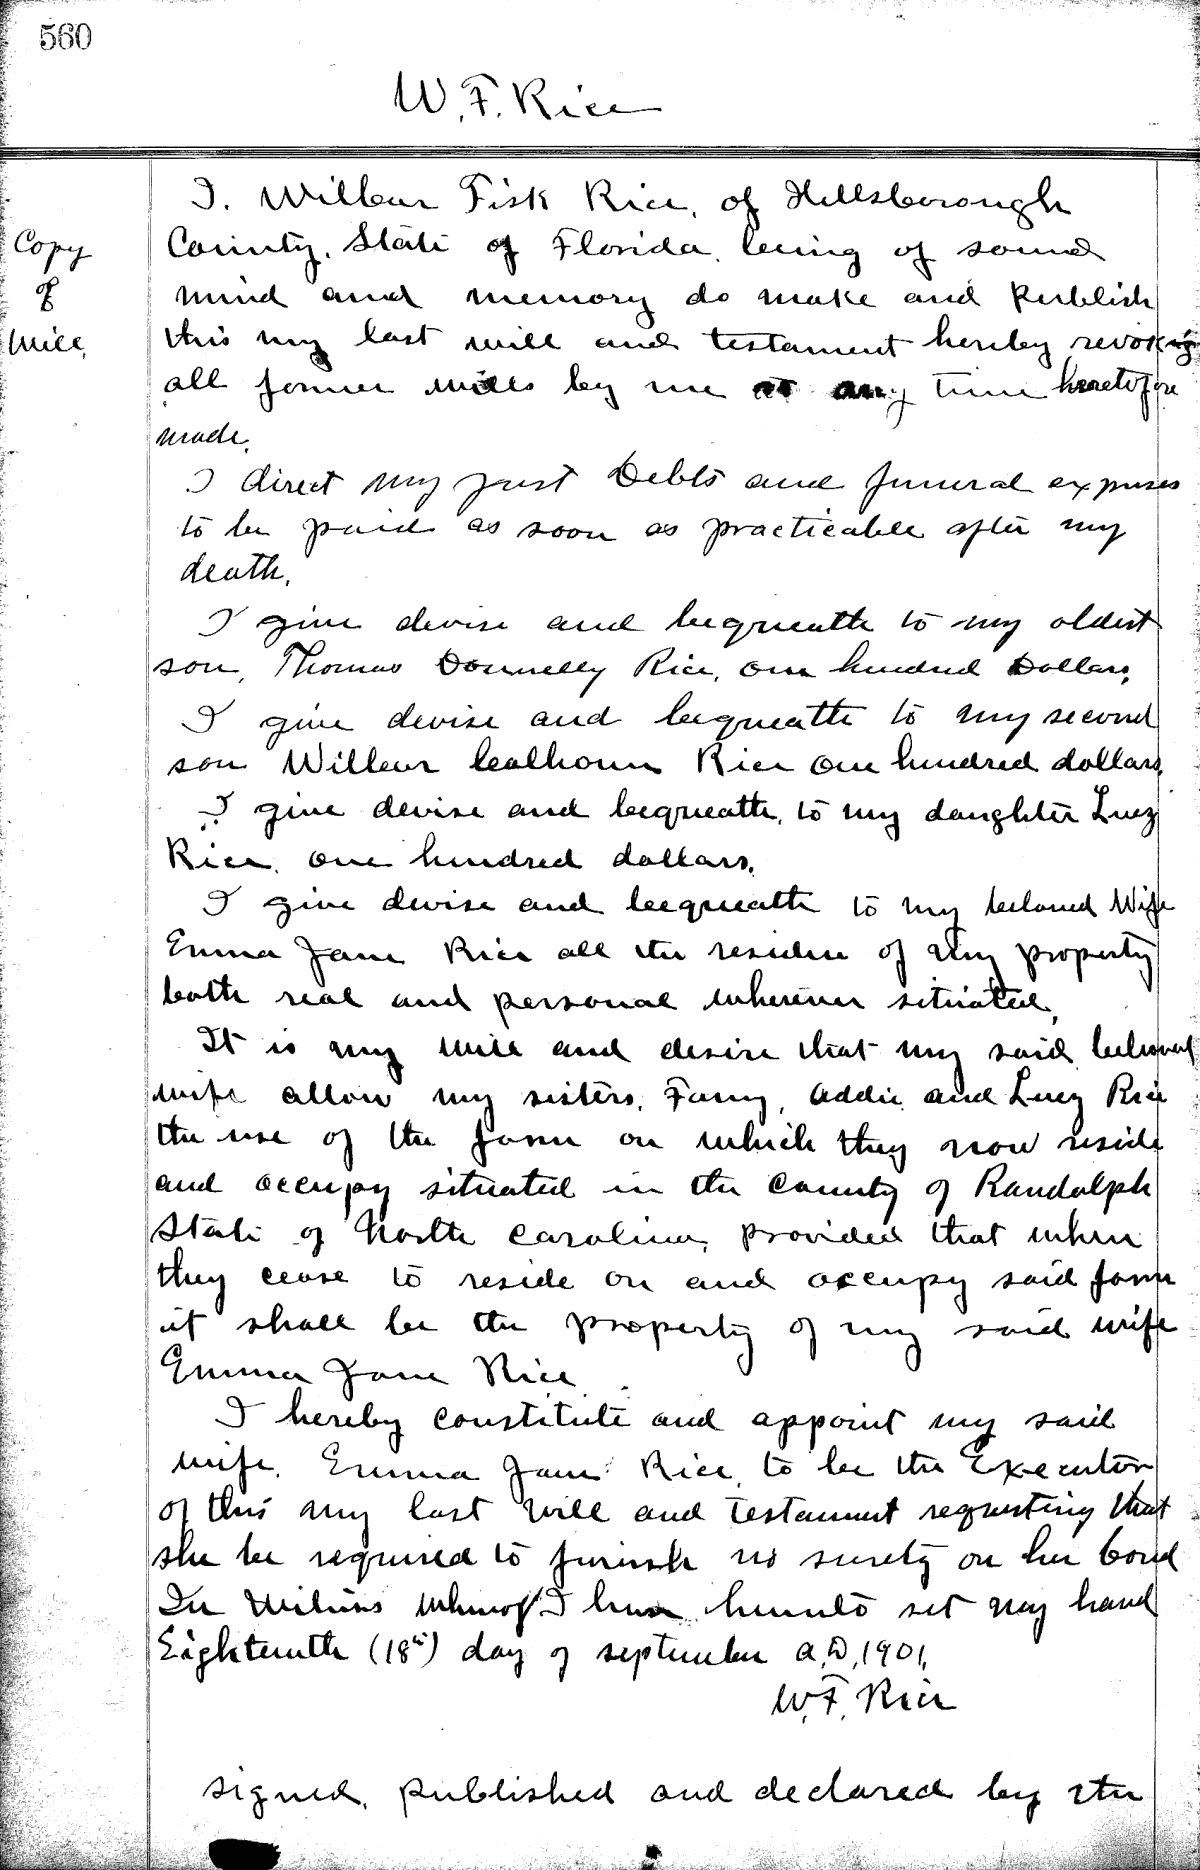 560
W. F. Rice
Copy
of
Will.
I. Wilbur Fisk Rice, of Hillsborough
County, State of Florida, being of sound
mind and memory do make and Publish
this my last will and testament hereby revoking
all former wills by me at any time heretofore
made.
I direct my just Debts and funeral expenses
to be paid as soon as practicable after my
death.
I give devise and bequeath to my oldest
son, Thomas Donnelly Rice, one hundred Dollars,
I give devise and bequeath to my second
son Wilbur Calhoun Rice one hundred dollars,
I give devise and bequeath, to my daughter Lucy
Rice, one hundred dollars,
I give devise and bequeath to my beloved Wife
Emma Jane Rice all the residue of my property
both real and personal wherever situated,
It is my will and desire that my said beloved
wife allow my sisters, Fanny, Addie and Lucy Rice
the use of the farm on which they now reside
and occupy situated in the County of Randolph
State of North Carolina, provided that when
they cease to reside on and occupy said farm
it shall be the property of my said wife
Emma Jane Rice
I hereby constitute and appoint my said
wife, Emma Jane Rice, to be the Executor
of this my last will and testament requesting that
she be required to furnish no surety on her bond
In Witness whereof I have hereunto set my hand
Eighteenth (18th) day of september A.D, 1901,
W. F. Rice
signed, published and declared by the